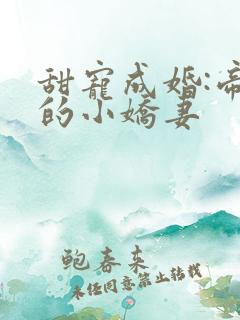 甜寵成婚:帝
的小嬌妻
鲍春来
未经同意禁止转载